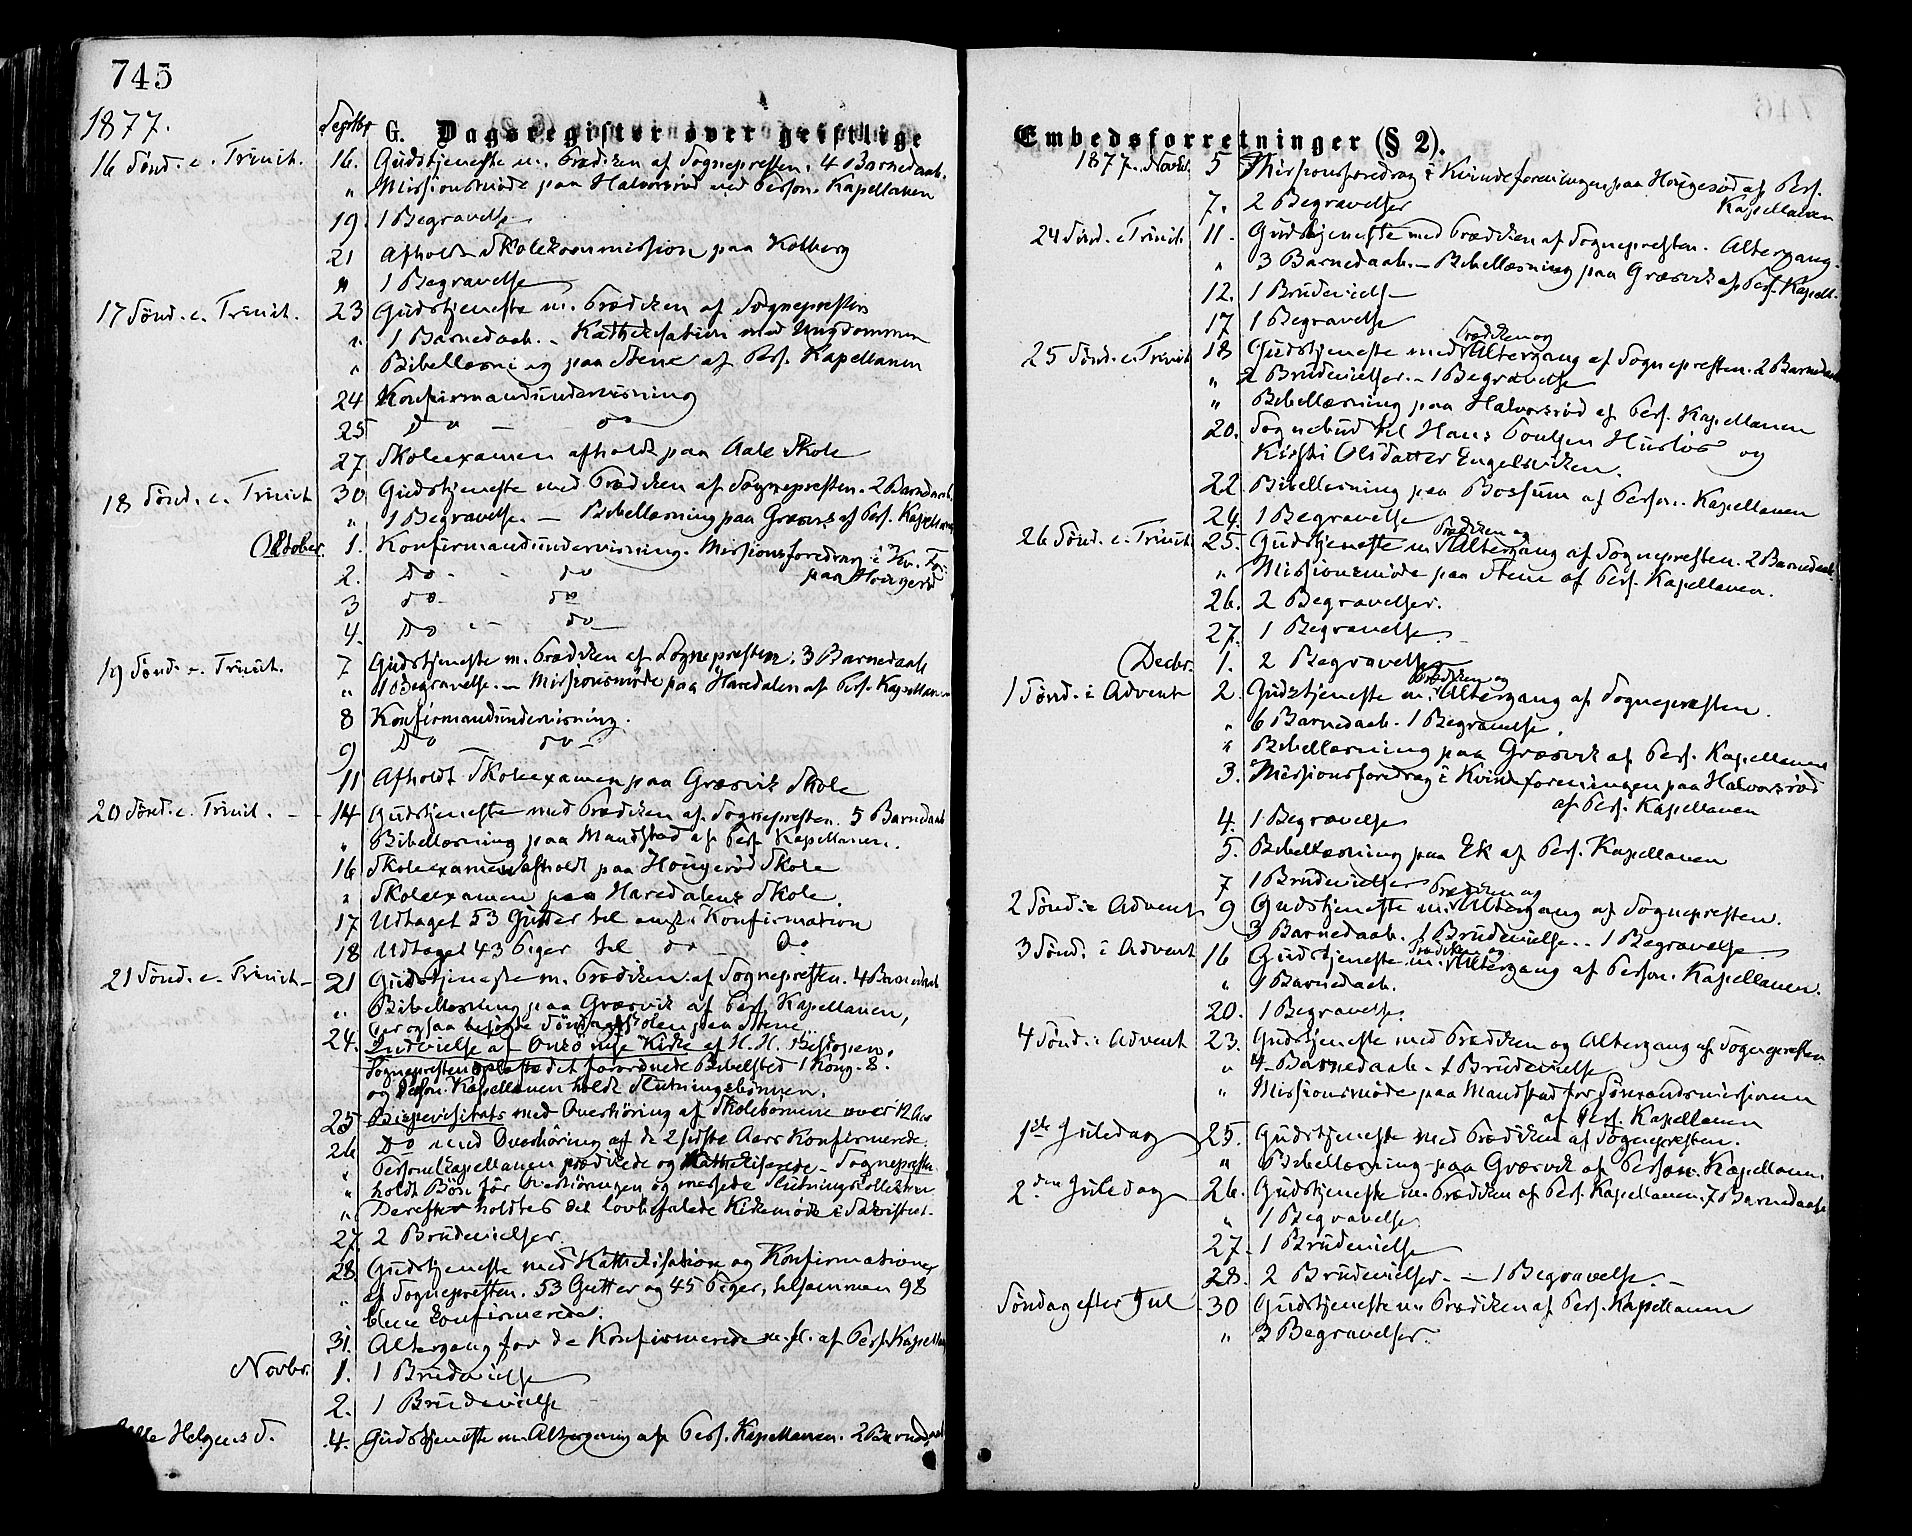 745
G. Dagsregister over geistlige
1877. Septbr
16 Sönd. e. Trinit. 16. Gudstjeneste m. Prædiken af Sognepresten. 4 Barnedaab.
" Missionsmöde paa Halvorsröd ved Person. Kapellanen
19. 1 Begravelse
21 Afholdt Skolekommission paa Kolberg
" 1 Begravelse
17 Sönd. e. Trinit. 23 Gudstjeneste m. Prædiken af Sognepresten
" 1 Barnedaab. - Kathekisation med Ungdommen
" Bibellæsning paa Stene af Pers. Kapellanen
24 Konfirmandundervisning
25 Do - do
27 Skoleexamen afholdt paa Aale Skole
18 Sönd. e. Trinit 30 Gudstjeneste med Prædiken af Sognepresten. 2 Barnedaab.
" 1 Begravelse. - Bibellæsning paa Græsvik af Pers. Kapellanen
Oktober. 1. Konfirmandundervisning. Missionsforedrag i Kv. Fo:
2. Do - do paa Hougeröd
3 do - do
4. Do - do
19 Sönd. e. Trinit. 7 Gudstjeneste m. Prædiken af Sognepresten. 3 Barnedaab
" 1 Begravelse. - Missionsmöde paa Haredalen af Pers. Kapellanen
8 Konfirmandundervisning.
9 Do do -
11 Afholdt Skoleexamen paa Græsvik Skole
20 Sönd. e. Trinit. - 14 Gudstjeneste med Prædiken af Sognepresten. 5 Barnedaab
" Bibellæsning paa Mandstad af Pers. Kapellanen.
16 Skoleexamen afholdt paa Hougeröd Skole
" Skoleexamen paa Haredalens Skole.
17 Udtaget 53 Gutter til Konfirmation
18 Udtaget 43 Piger til do - Do
21 Sönd. e. Trinit - 21 Gudstjeneste m. Prædiken af Sognepresten. 4 Barnedaab
" Bibellæsning paa Græsvik af Pers. Kapellanen,
der ogsaa besögte Söndagsskolen paa Stene
24. Indvielse af Onsö nye Kirke af H. H. Biskopen.
Sognepresten oplæste det forordnede Bibelsted 1 Kong. 8.
og Person. Kapellanen holdt Slutningsbönnen.
25 Bispevisitats med Overhöring af Skolebörnene over 12 Aar
26 Do med Overhöring af de 2 sidste Aars Konfirmerede.
" Personelkapellanen prædikede og Kathekiserede - Sognepresten
" holdt Bön för Overhöringen og messede Slutningskollekten
" Derefter holdtes det lovbefalede Kirkemöde i Sakristiet.
27. 2 Brudevielser.
28. Gudstjeneste med Kathekisation og Konfirmationer
" af Sognepresten. 53 Gutter og 45 Piger, tilsammen 98
bleve konfirmerede.
31. Altergang for de Konfirmerede m. fl. af Pers. Kapellan
Novbr. 1. 1 Brudevielse
2. 1 Brudevielse
Alle Helgens d. 4. Gudstjeneste m. Altergang af Pers. Kapellanen. 2 Barnedaab
Embedsforretninger (§ 2).
1877. Novbr. 5 Missionsforedrag i Kvindeforeningen paa Hougeröd af Pers.
Kapellanen
7. 2 Begravelser
24 Sönd. e. Trinit. 11. Gudstjeneste med Prædiken af Sognepresten. Altergang.
" 3 Barnedaab. - Bibellæsning paa Græsvik af Pers. Kapell.
12. 1 Brudevielse
17 1 Begravelse
25 Sönd. e. Trinit 18 Gudstjeneste med Prædiken og Altergang af Sognepresten. 2 Barnedaab
" 2 Brudevielser. - 1 Begravelse
" Bibellæsning paa Halvorsröd af Pers. Kapellanen
20. Sognebud til Hans Poulsen Huslös og
Kirsti Olsdatter Engelsviken.
22. Bibellæsning paa Bossum af Person. Kapellanen
24. 1 Begravelse
26 Sönd. e. Trinit 25. Gudstjeneste m. Prædiken og Altergang af Sognepresten. 2 Barnedaab
" Missionsmöde paa Stene af Pers. Kapellanen.
26. 2 Begravelser.
27. 1 Begravelse.
Decbr. 1. 2 Begravelser
1 Sönd. i Advent 2. Gudstjeneste m. Prædiken og Altergang af Sognepresten.
" 6 Barnedaab. 1 Begravelse.
" Bibellæsning paa Græsvik af Pers. Kapellanen
3. Missionsforedrag i Kvindeforeningen paa Halvorsröd
af Pers. Kapellanen
4. 1 Begravelse
5. Bibellæsning paa Ek af Pers. Kapellanen
7 1 Brudevielse
2 Sönd. i Advent 9 Gudstjeneste m. Prædiken og Altergang af Sognepresten.
3 Barnedaab. 1 Brudevielse. - 1 Begravelse
3 Sönd. i Advent 16 Gudstjeneste m. Prædiken og Altergang af Person. Kapellanen.
" 1 Barnedaab.
20. 1 Begravelse.
4 Sönd. i Advent 23. Gudstjeneste med Prædiken og Altergang af Sognepresten
" 4 Barnedaab - 1 Brudevielse
" Missionsmöde paa Mandstad for Sömandsmissionen
af Pers. Kapellanen
1ste Juledag 25. Gudstjeneste med Prædiken af Sognepresten.
" Bibellæsning paa Græsvik af Person. Kapellanen.
2den Juledag 26. Gudstjeneste m. Prædiken af Pers. Kapellanen. 7 Barnedaab
" 1 Begravelse.
27. 1 Brudevielse
28. 2 Brudevielser. - 1 Begravelse. -
Söndag efter Jul 30 Gudstjeneste m. Prædiken af Pers. Kapellanen
" 3 Begravelser.